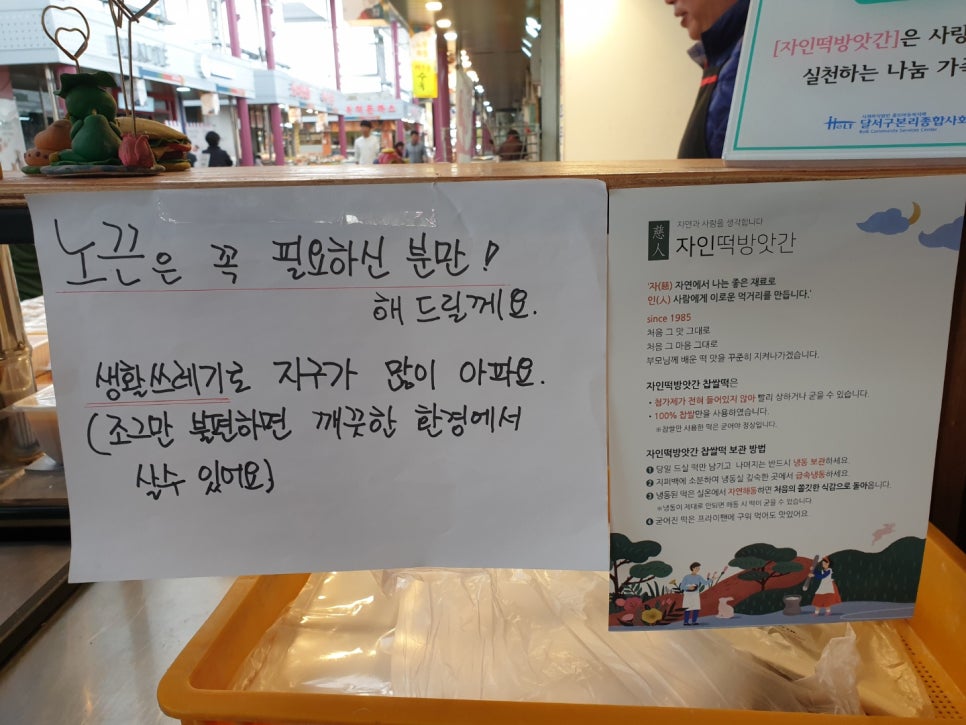 [자인떡방앗간]은 사랑
실천하는 나눔 가족
HOLT 달서구본리종합사회
노끈은 꼭 필요하신 분만!
해 드릴께요.
생활쓰레기로 지구가 많이 아파요.
(조그만 불편하면 깨끗한 환경에서
살수 있어요)
慈人
자연과 사람을 생각합니다
자인떡방앗간
'자(慈) 자연에서 나는 좋은 재료로
인(人) 사람에게 이로운 먹거리를 만듭니다.'
since 1985
처음 그 맛 그대로
처음 그 마음 그대로
부모님께 배운 떡 맛을 꾸준히 지켜나가겠습니다.
자인떡방앗간 찹쌀떡은
• 첨가제가 전혀 들어있지 않아 빨리 상하거나 굳을 수 있습니다.
• 100% 찹쌀만을 사용하였습니다.
※찹쌀만 사용한 떡은 굳어야 정상입니다.
자인떡방앗간 찹쌀떡 보관 방법
❶ 당일 드실 떡만 남기고 나머지는 반드시 냉동 보관하세요.
❷ 지퍼백에 소분하여 냉동실 깊숙한 곳에서 급속냉동하세요.
❸ 냉동된 떡은 실온에서 자연해동하면 처음의 쫄깃한 식감으로 돌아옵니다.
※냉동이 제대로 안되면 해동 시 떡이 굳을 수 있습니다
❹ 굳어진 떡은 프라이팬에 구워 먹어도 맛있어요.